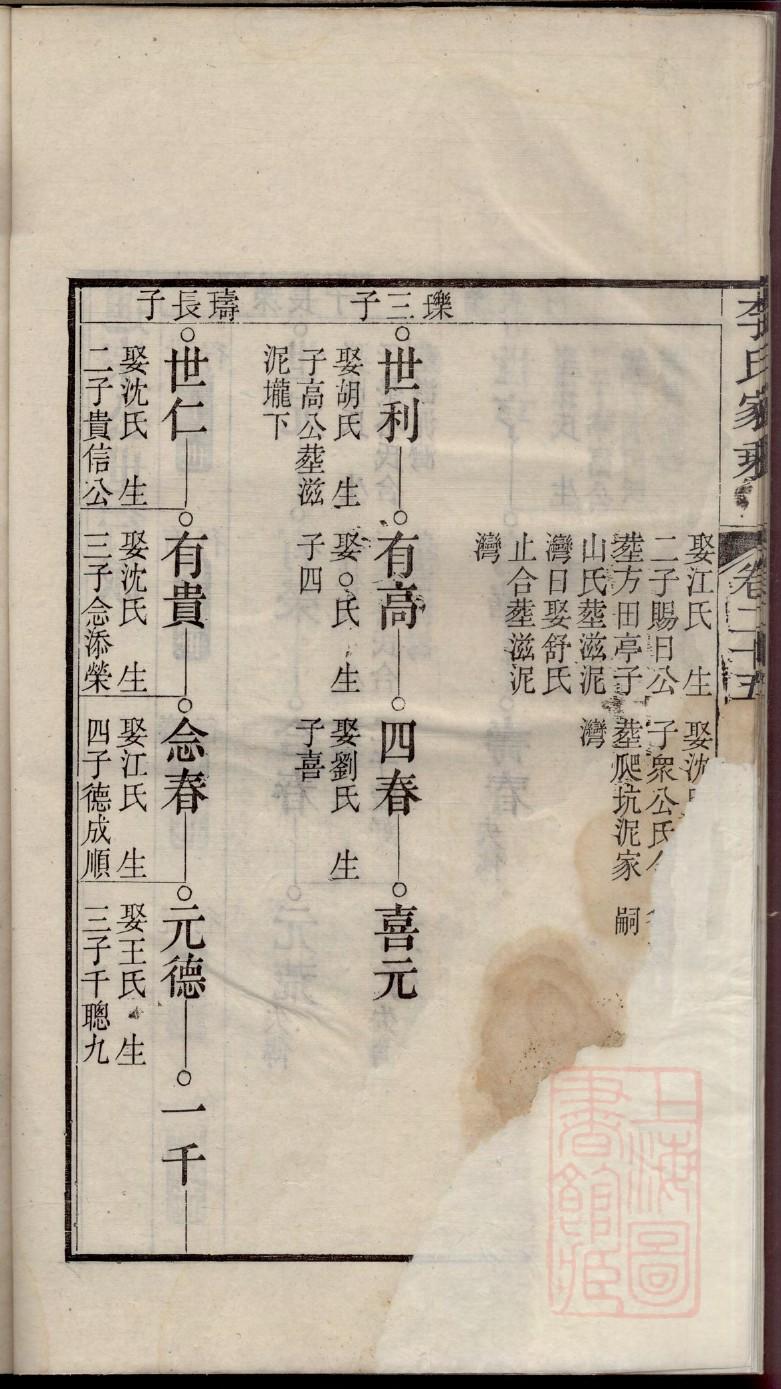 李氏家乘
卷二十五
娶江氏　生
二子賜日公
塟方田亭子
山氏塟滋泥
灣日娶舒氏
止合塟滋泥
灣
娶沈
子衆公氏
塟爬坑泥家　嗣
灣
璪三子
世利
娶胡氏　生
子高公塟滋
泥壠下
有高
娶○氏　生
子四
四春
娶劉氏　生
子喜
喜元
璹長子
世仁
娶沈氏　生
二子貴信公
有貴
娶沈氏　生
三子念添榮
念春
娶江氏　生
四子德成順
元德
娶王氏　生
三子千聰九
一千
上海圖
書館藏